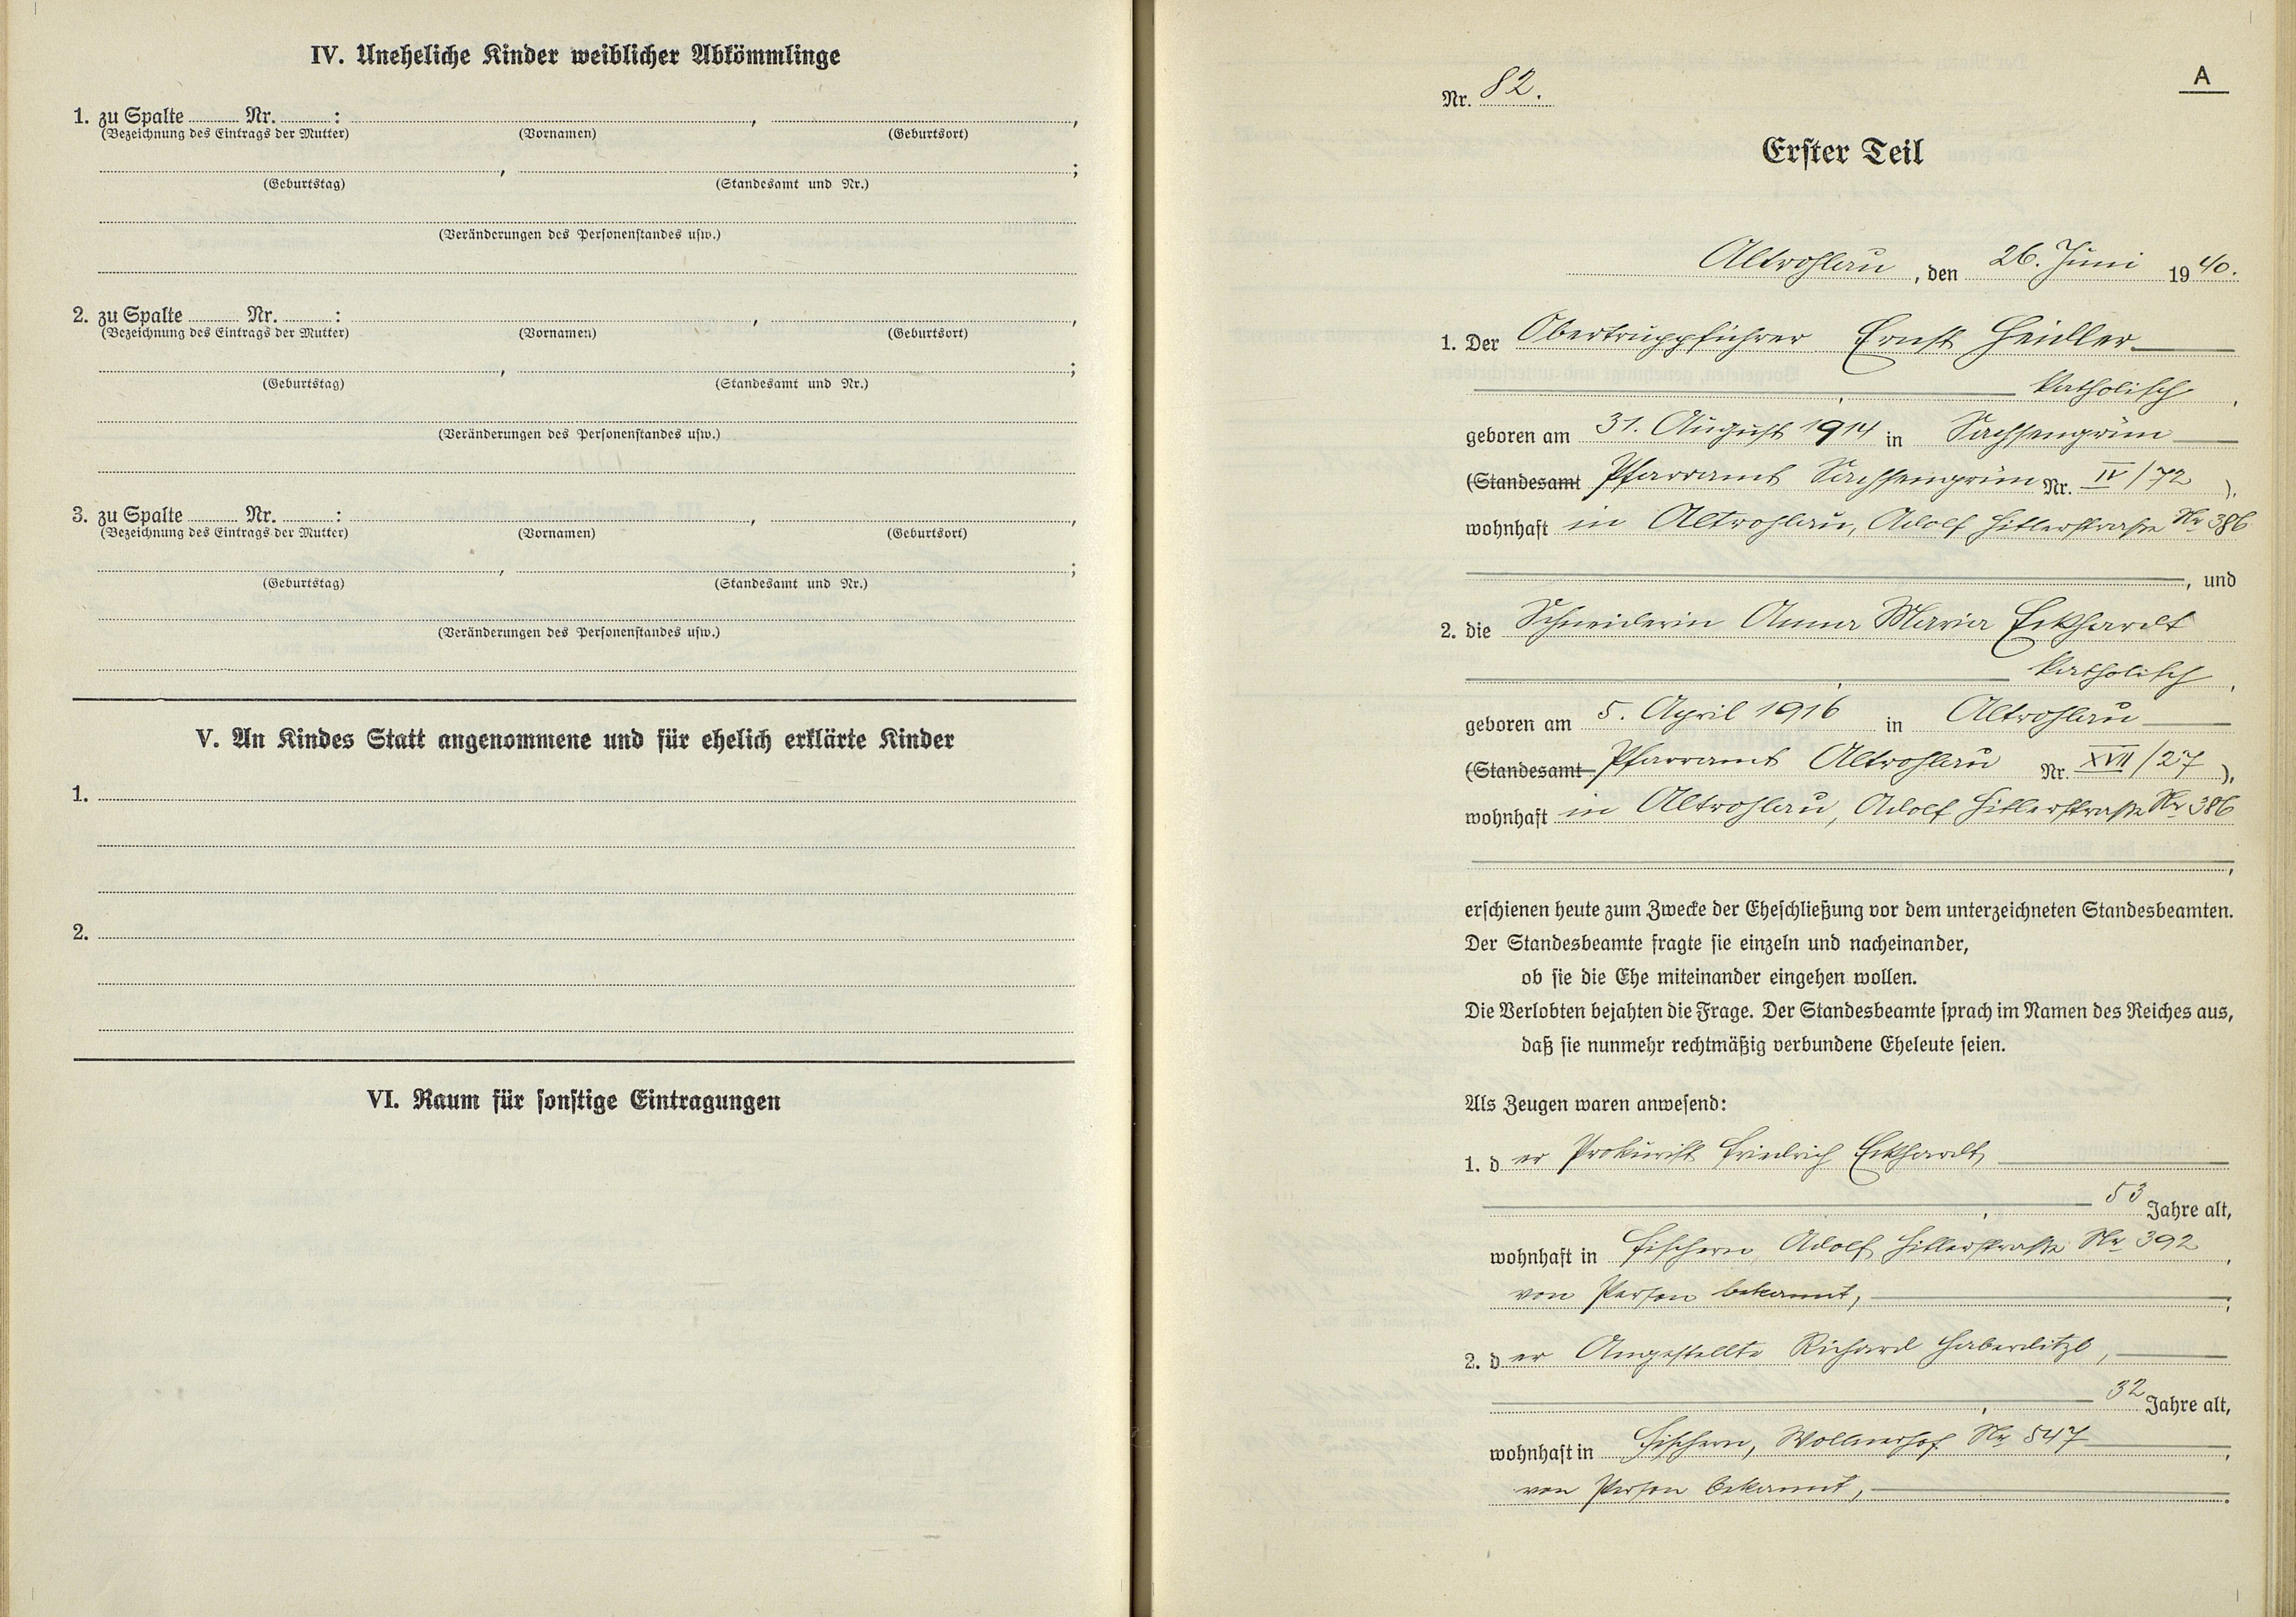 IV. Uneheliche Kinder weiblicher Abkömmlinge
1. zu Spalte ........ Nr. ........ : ........, ........,
(Bezeichnung des Eintrags der Mutter) (Vornamen) (Geburtsort)
........, ........;
(Geburtstag) (Standesamt und Nr.)
(Veränderungen des Personenstandes usw.)
2. zu Spalte ........ Nr. ........ : ........, ........,
(Bezeichnung des Eintrags der Mutter) (Vornamen) (Geburtsort)
........, ........;
(Geburtstag) (Standesamt und Nr.)
(Veränderungen des Personenstandes usw.)
3. zu Spalte ........ Nr. ........ : ........, ........,
(Bezeichnung des Eintrags der Mutter) (Vornamen) (Geburtsort)
........, ........;
(Geburtstag) (Standesamt und Nr.)
(Veränderungen des Personenstandes usw.)
V. An Kindes Statt angenommene und für ehelich erklärte Kinder
1.
2.
VI. Raum für sonstige Eintragungen
A
Nr. 82.
Erster Teil
Altrohlau, den 26. Juni 1940.
1. Der Obertruppführer Ernst Heidler
katholisch,
geboren am 31. August 1914 in Sachsengrün
(Standesamt Pfarramt Sachsengrün Nr. IV/72),
wohnhaft in Altrohlau, Adolf Hitlerstraße Nr 386
, und
2. die Schneiderin Anna Maria Eckhardt
katholisch,
geboren am 5. April 1916 in Altrohlau
(Standesamt Pfarramt Altrohlau Nr. XVII/27),
wohnhaft in Altrohlau, Adolf Hitlerstraße Nr 386
,
erschienen heute zum Zwecke der Eheschließung vor dem unterzeichneten Standesbeamten.
Der Standesbeamte fragte sie einzeln und nacheinander,
ob sie die Ehe miteinander eingehen wollen.
Die Verlobten bejahten die Frage. Der Standesbeamte sprach im Namen des Reiches aus,
daß sie nunmehr rechtmäßig verbundene Eheleute seien.
Als Zeugen waren anwesend:
1. der Prokurist Friedrich Eckhardt,
, 53 Jahre alt,
wohnhaft in Fischern, Adolf Hitlerstraße Nr 392,
von Person bekannt,;
2. der Angestellte Richard Haberditzl,
, 32 Jahre alt,
wohnhaft in Fischern, Wollnerhof Nr 547,
von Person bekannt,.